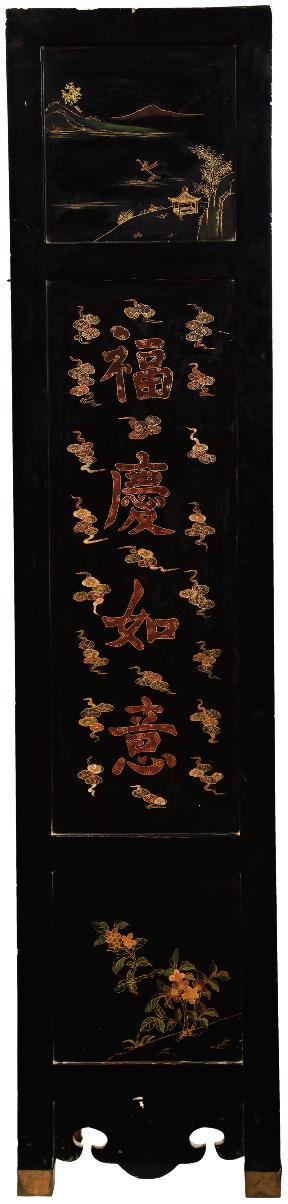 福慶如意